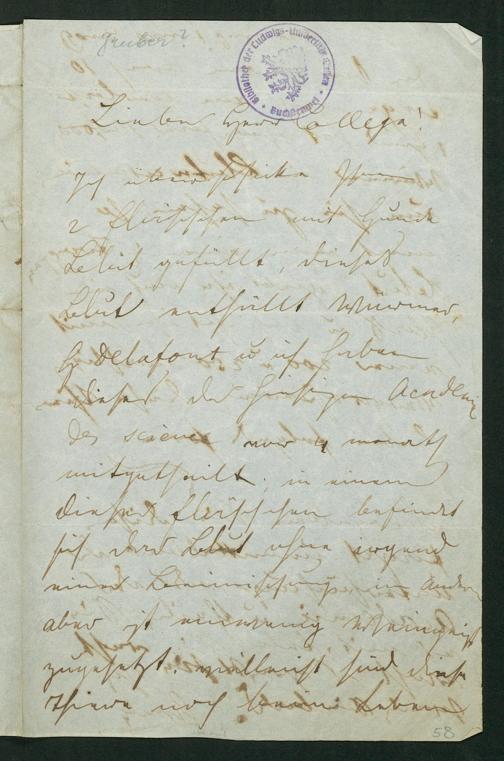 Gruber?
Bibliothek der Ludwigs-Universität Giessen
Buchstempel
Lieber Herr College!
Ich überschicke Ihnen
2 fläschchen mit Hunde
Blut gefüllt, dieses
Blut enthällt Würmer,
H Delafont u ich haben
dieses der hiesigen Academie
des science vor 4 monath
mitgetheilt. in einem
dieser fläschchen befindet
sich das Blut ohne irgend
einer Beimischung im andern
aber ist ein wenig Weingeist
zugesetzt. vielleicht sind diese
Thiere noch beim Leben
58